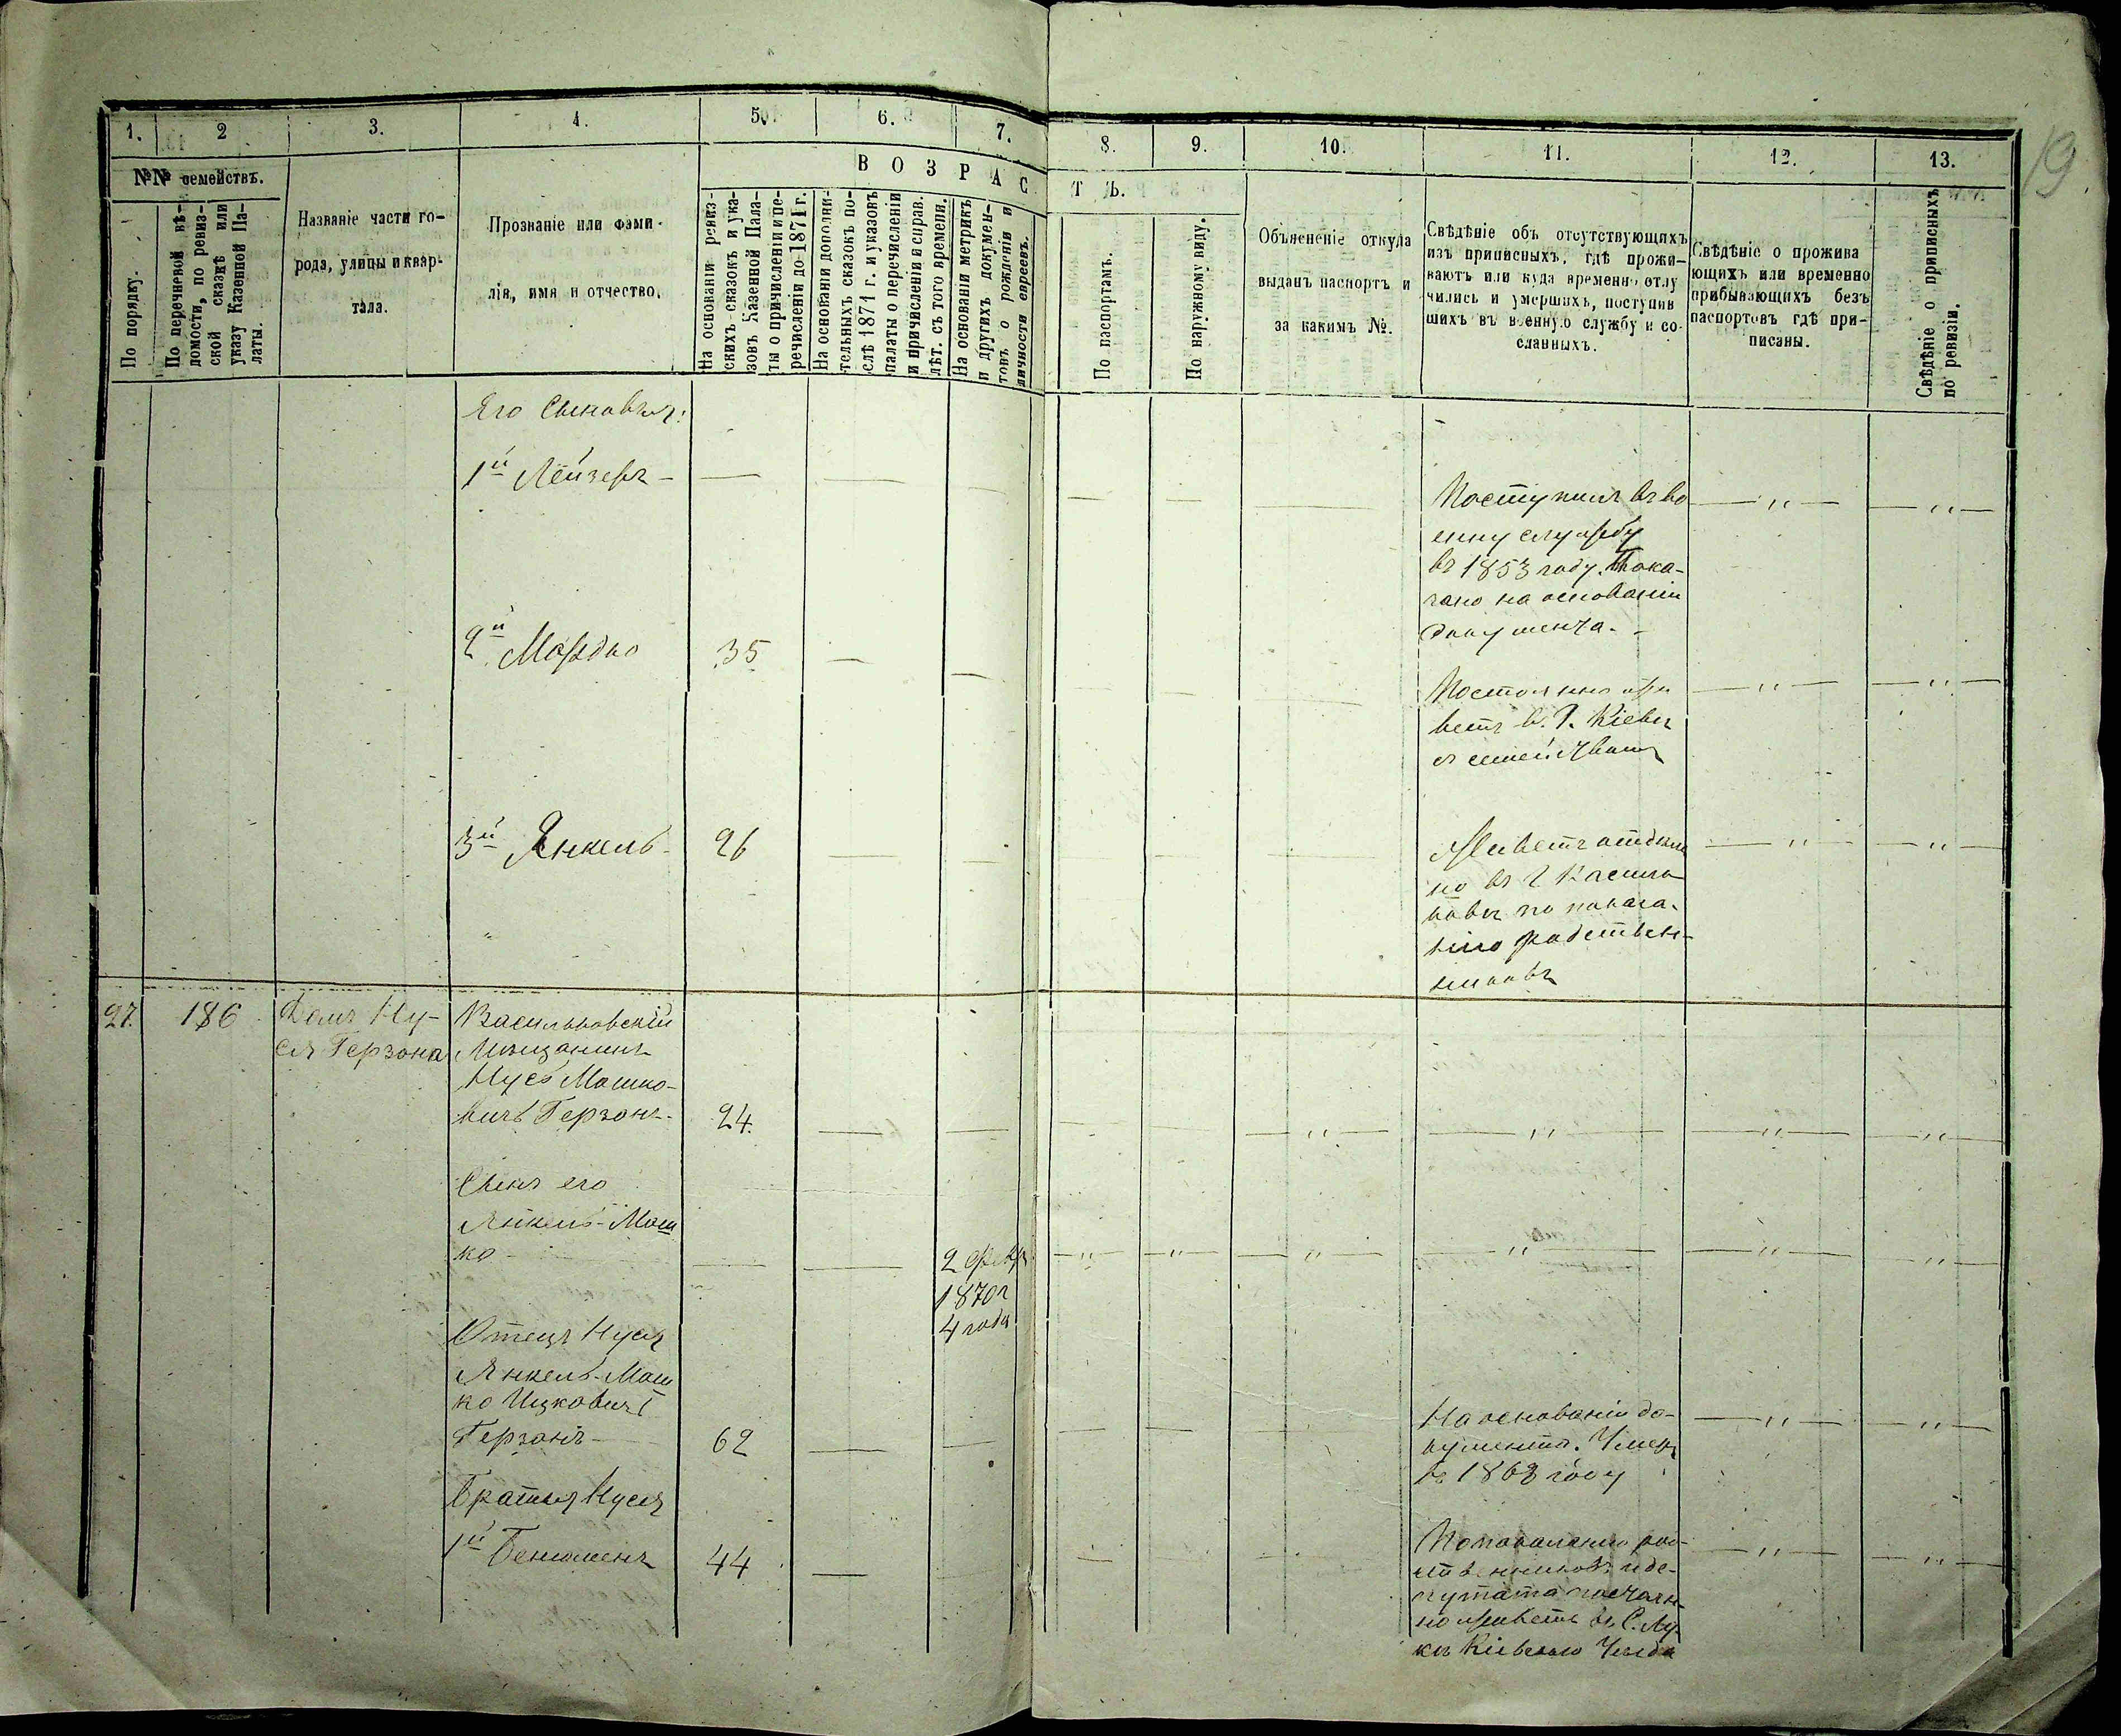 19.
1.
2
3.
4.
5.
6.
7.
8.
9.
10.
11.
12.
13.
№№ семействъ.
По порядку.
По перечневой вѣ-
домости, по ревиз-
ской сказкѣ или
указу Казенной Па-
латы.
Названіе части го-
рода, улицы и квар-
тала.
Прозваніе или фами-
лія, имя и отчество.
ВОЗРАС
ТЪ.
На основаніи ревиз-
скихъ сказокъ и ука-
зовъ Казенной Пала-
ты о причисленіи и пе-
речисленіи до 1871 г.
На основаніи дополни-
тельныхъ сказокъ по-
слѣ 1871 г. и указовъ
палаты о перечисленіи
и причисленіи и справ.
лѣт. съ того времени.
На основаніи метрикъ
и другихъ докумен-
товъ о рожденіи и
личности евреевъ.
По паспортамъ.
По наружному виду.
Объясненіе откуда
выданъ паспортъ и
за какимъ №.
Свѣдѣніе объ отсутствующихъ
изъ приписныхъ, гдѣ прожи-
ваютъ или куда временно отлу
чились и умершихъ, поступив
шихъ въ военную службу и со-
сланныхъ.
Свѣдѣніе о прожива
ющихъ или временно
прибывающихъ безъ
паспортовъ гдѣ при-
писаны.
Свѣдѣніе о приписныхъ
по ревизіи.
Его Сыновья:
1й Лейзеръ —
Поступилъ въ во
енну службу
въ 1853 году. Пока-
зано на основаніи
документа. -
2й Мордко 35
Постоянно жи
ветъ в. г. Кіевѣ
съ семействомъ
3й Янкель 26
Живетъ отдѣль
но въ г Василь
ковѣ по показа-
нію родствен-
никовъ
27. 186 Домъ Ну-
ся Герзона
Васильковскій
Мѣщанинъ
Нусь Мошко-
вичъ Герзонъ - 24.
Сынъ его
Янкель-Мош
ко -
2 Февр
1870 г
4 года
Отецъ Нуся
Янкель-Мош
ко Ицковичъ
Герзонъ - 62
На основаніи до-
кумента. Умеръ
въ 1868 году
Братья Нуся
1й Бенюменъ 44
По показанію род-
ственниковъ и де-
путата постоян-
но живетъ въ С.
Кіевского Уѣзда